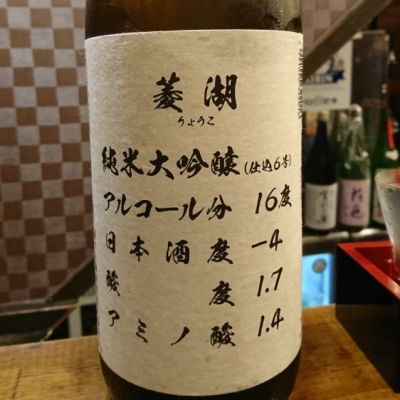 菱湖
りょうこ
純米大吟醸(仕込6号)
アルコール分 16度
日本酒度 -4
酸度 1.7
アミノ酸 1.4